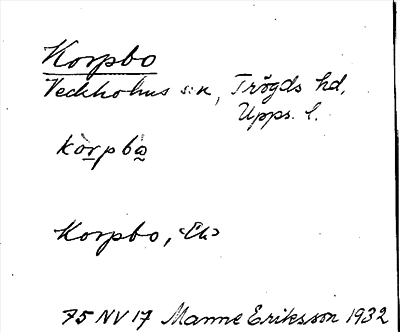 Korpbo
Veckholms sn, Trögds hd,
Upps. l.
kòrpbò
Korpbo, <Ek>
75 NV 17 Manne Eriksson 1932